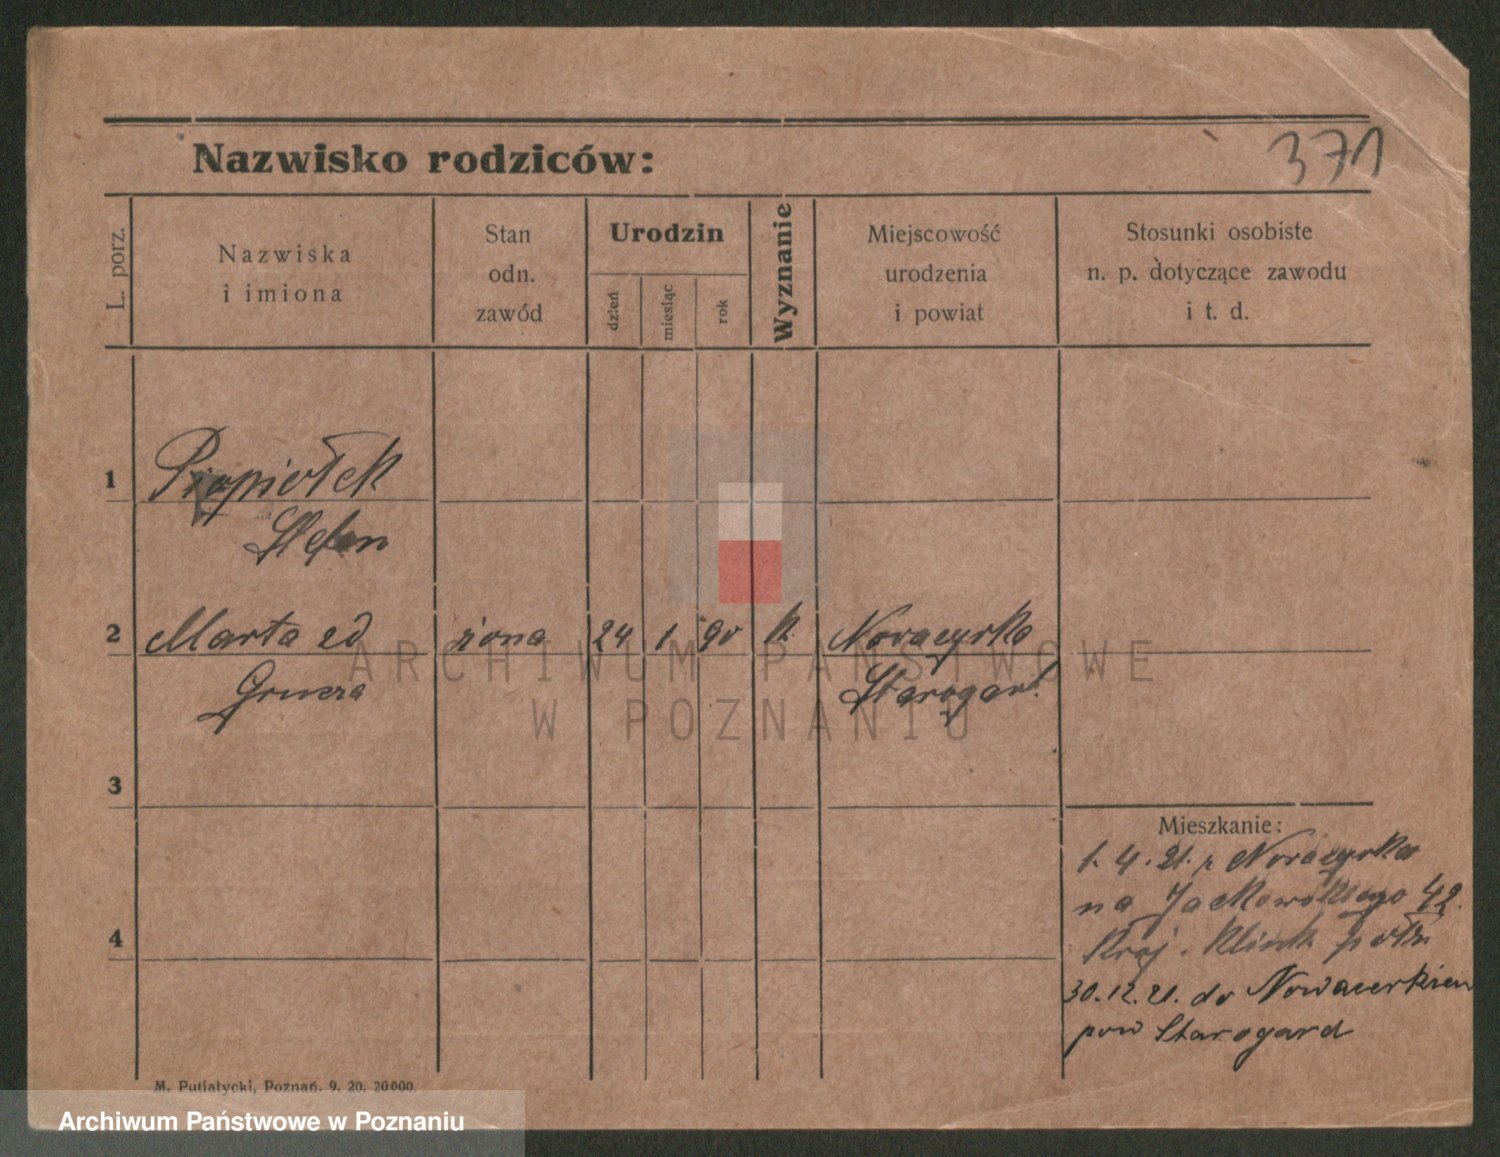 371
Nazwisko rodziców:
L. porz.
Nazwiska
i imiona
Stan
odn.
zawód
Urodzin
dzień
miesiąc
rok
Wyznanie
Miejscowość
urodzenia
i powiat
Stosunki osobiste
n. p. dotyczące zawodu
i t. d.
1
Stefan
2 Marta zd żona 24 1 90 k. Novaczyrka
Starogard
3
4
Mieszkanie:
1. 4. 21. z
na Jackowskiego 42.
30.12.21. do
pow Starogard
M. Putiatycki, Poznań. 9. 20. 20000.
ARCHIWUM PAŃSTWOWE
W POZNANIU
Archiwum Państwowe w Poznaniu